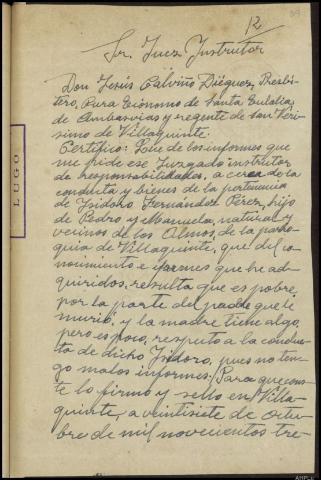 12
Sr. Juez Instrutor
Don Jesús Calviño Diéguez, Presbí-
tero, Cura Ecónomo de Santa Eulalia
de Ambasvías y regente de San Verí-
simo de Villaquinte.
Certifico: Que de los informes que
me pide ese Juzgado instrutor
de responsabilidades, a cerca de la
conduta y bienes de la pertinencia
de Isidoro Fernández Pérez, hijo
de Pedro y Manuela, natural y
vecinos de los Olmos, de la parro-
quia de Villaquinte, que del co-
nocimiento e informes que he ad-
quiridos, resulta que es pobre
por la parte del padre que ti
murió, y la madre tiene algo,
pero es poco, respecto a la conduc-
ta de dicho Isidoro, pues no ten-
go malos informes. Para que cons-
te lo firmo y sello en Villa-
quinte, a veintisiete de octu-
bre de mil novecientos tre-
LUGO
AHPLU